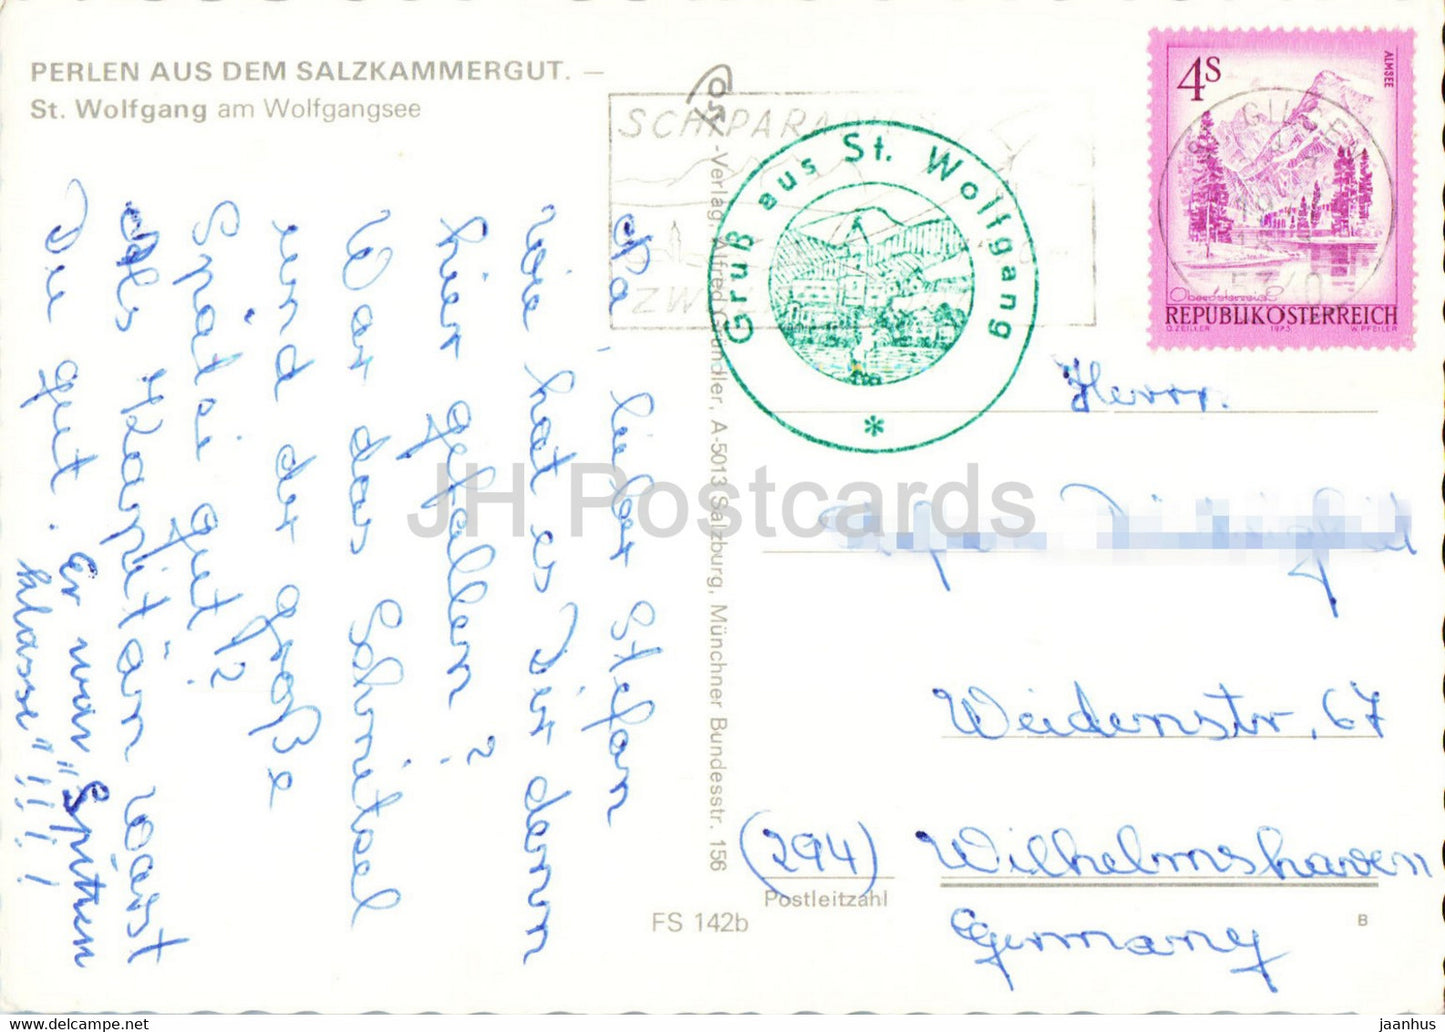 PERLEN AUS DEM SALZKAMMERGUT. —
St. Wolfgang am Wolfgangsee
Na, lieber Stefan
wie hat es Dir denn
hier gefallen?
War das Schnitzel
und der große
Spatzi gut?
Als Kapitän wärst
Du gut. Er war „Spitzen
klasse"!!!!
-Verlag, Alfred Gründler, A-5013 Salzburg, Münchner Bundesstr. 156
FS 142b
SCHIPARA
ZW
Gruß aus St. Wolfgang
*
4S
ALMSEE
GILGEN
5340
Oberösterreich
REPUBLIK ÖSTERREICH
O. ZEILLER 1973 W. PFEILER
Herrn
Weidenstr. 67
(294) Wilhelmshaven
Postleitzahl
Germany
B
JH Postcards
www.delcampe.net
jaanhus